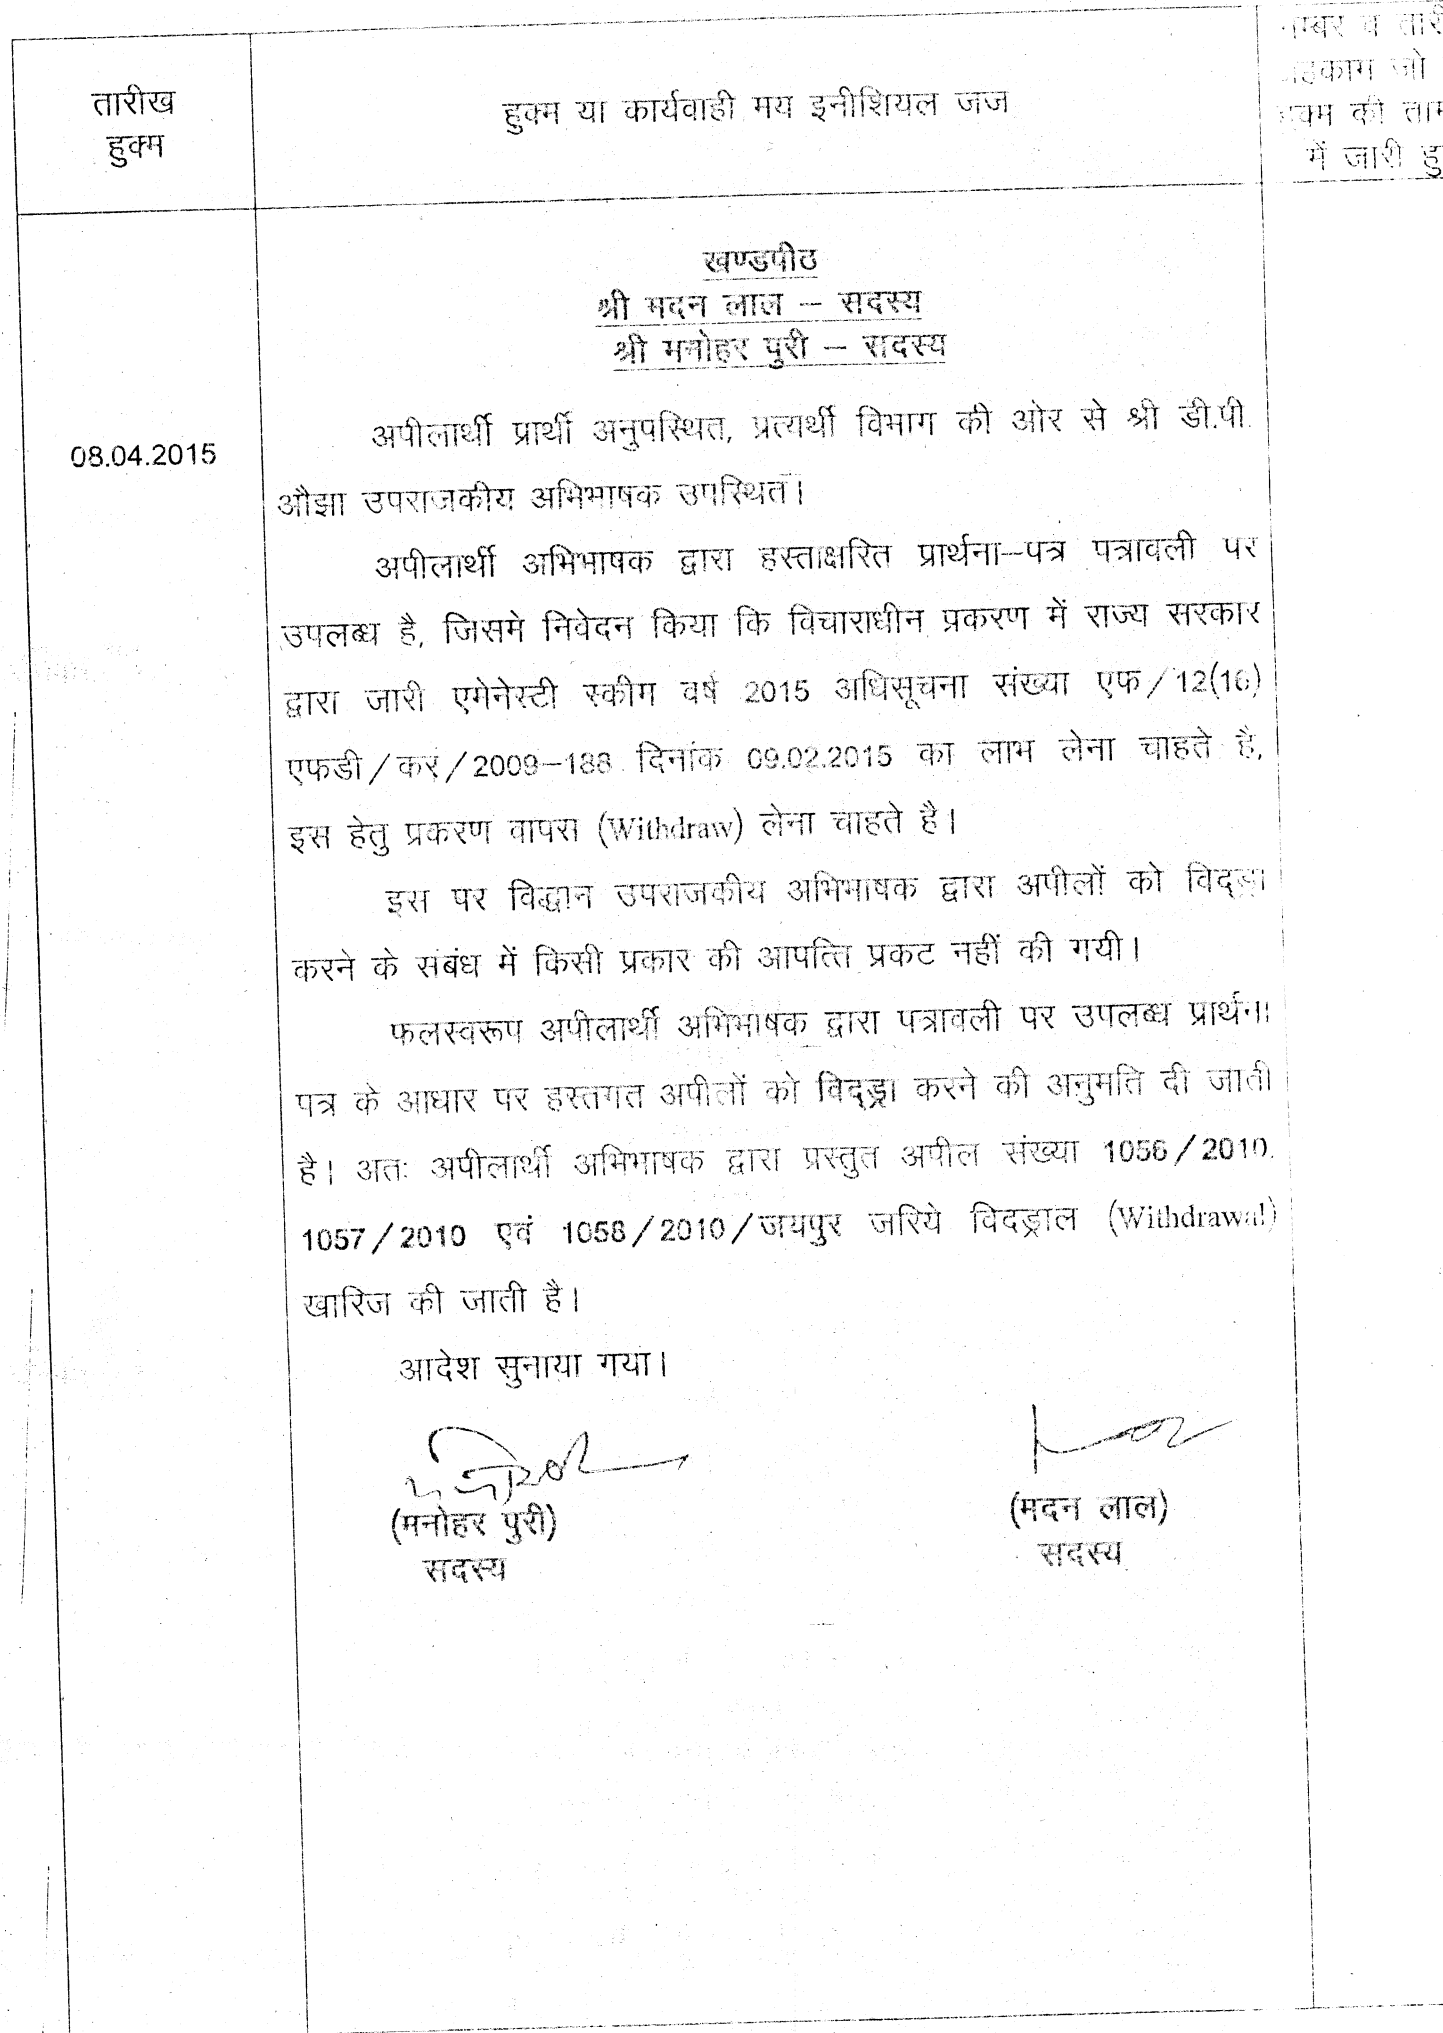 तारीख
हुक्म
हुक्म या कार्यवाही मय इनीशियल जज
व
जो
की
में जारी
खण्डपीठ
श्री मदन लाल – सदस्य
श्री मनोहर पुरी – सदस्य
08.04.2015
अपीलार्थी प्रार्थी अनुपस्थित, प्रत्यर्थी विभाग की ओर से श्री डी.पी.
औझा उपराजकीय अभिभाषक उपस्थित।
अपीलार्थी अभिभाषक द्वारा हस्ताक्षरित प्रार्थना–पत्र पत्रावली पर
उपलब्ध है, जिसमे निवेदन किया कि विचाराधीन प्रकरण में राज्य सरकार
द्वारा जारी एमेनेस्टी स्कीम वर्ष 2015 अधिसूचना संख्या एफ/12(16)
एफडी/कर/2009–188 दिनांक 09.02.2015 का लाभ लेना चाहते है,
इस हेतु प्रकरण वापस (Withdraw) लेना चाहते है।
इस पर विद्धान उपराजकीय अभिभाषक द्वारा अपीलों को विद्ड्रा
करने के संबंध में किसी प्रकार की आपत्ति प्रकट नहीं की गयी।
फलस्वरूप अपीलार्थी अभिभाषक द्वारा पत्रावली पर उपलब्ध प्रार्थना
पत्र के आधार पर हस्तगत अपीलों को विद्ड्रा करने की अनुमति दी जाती
है। अतः अपीलार्थी अभिभाषक द्वारा प्रस्तुत अपील संख्या 1056/2010,
1057/2010 एवं 1058/2010/जयपुर जरिये विदड्राल (Withdrawal)
खारिज की जाती है।
आदेश सुनाया गया।
(मनोहर पुरी)
सदस्य
(मदन लाल)
सदस्य